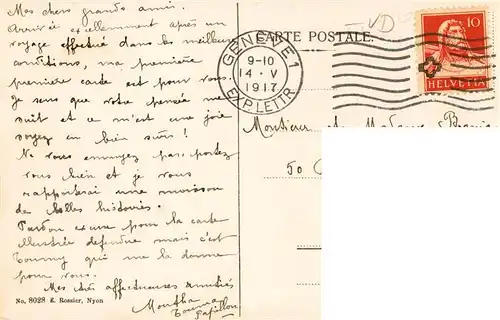 Mes chers grands amis.
Arrivée excellemment après un
voyage effectué dans les meilleures
conditions, ma première
première carte est pour vous.
Je sens que votre pensée me
suit et ce m'est une joie
soyez en bien sûrs!
Ne vous ennuyez pas, portez
vous bien et je vous
rapporterai une moisson
de belles histoires.
Pardon excuse pour la carte
illustrée défendue mais c'est
Tommy qui me la donne
pour vous.
Mes très affectueuses amitiés
Papillon
No. 8028 E. Rossier, Nyon
CARTE POSTALE.
VD
GENÈVE 1
9-10
14·V
1917
EXP. LETTR.
10
HELVETIA
Monsieur et Madame
50